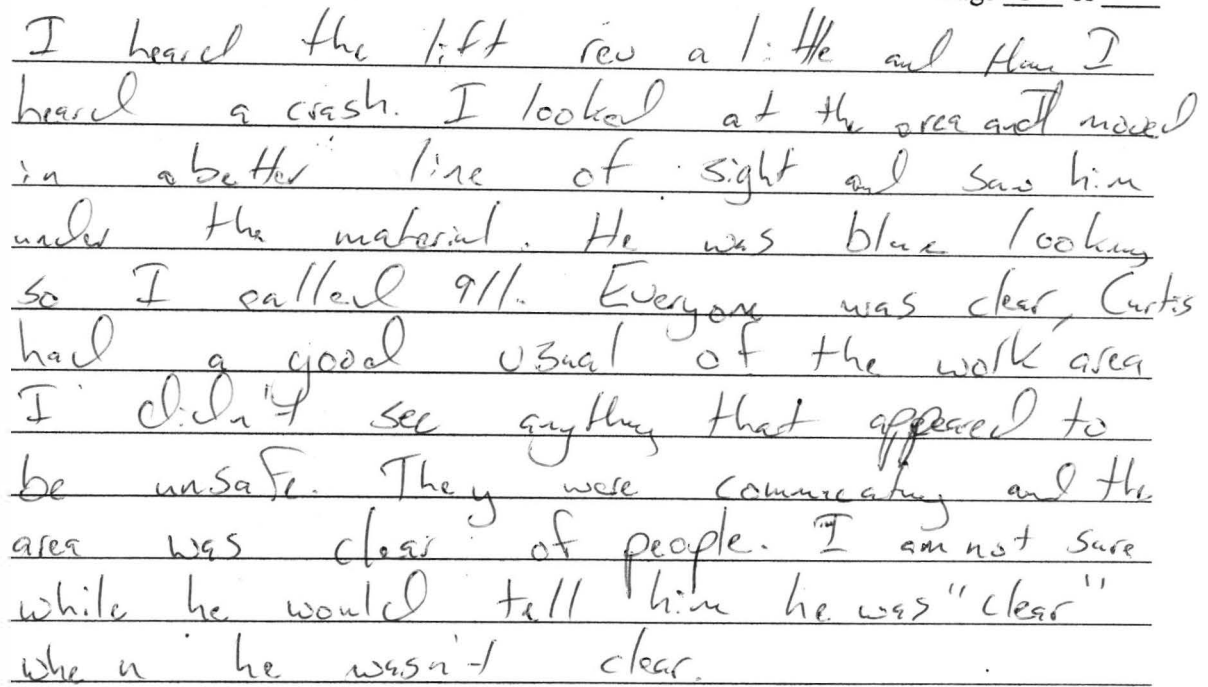 I heard the lift rev a little and then I
heard a crash. I looked at the area and I moved
in a better line of sight and saw him
under the material. He was blue looking
so I called 911. Everyone was clear, Curtis
had a good usual of the work area
I didn't see anything that appeared to
be unsafe. They were commicating and the
area was clear of people. I am not sure
while he would tell him he was "clear"
when he wasn't clear.